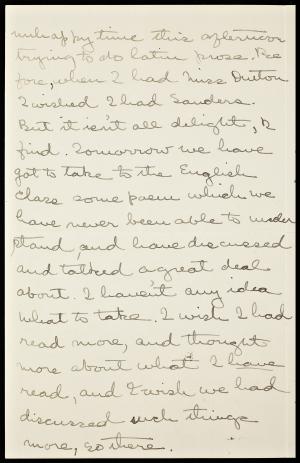 unhappy time this afternoon
trying to do latin prose. Be
fore, when I had Miss Dutton
I wished I had Sanders.
But it isn't all delight, I
find. Tomorrow we have
got to take to the English
class some poem which we
have never been able to under
stand, and have discussed
and talked a great deal
about. I haven't any idea
what to take. I wish I had
read more, and thought
more about what I have
read, and I wish we had
discussed such things
more, so there.